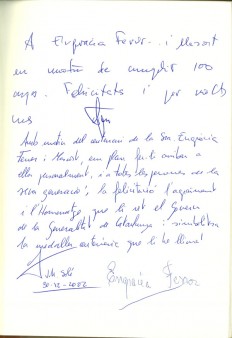 A Engracia Ferrer... i Massot
en motiu de cumplir 100
anys. Felicitats i per molts
mes
Amb motiu del centenari de la Sra. Engràcia
Ferrer i Massot, em plau fer-li arribar a
ella personalment, i a totes les persones de la
seva generació, la felicitació, l'agraïment
i l'Homenatge que li ret el Govern
de la Generalitat de Catalunya i simbolitza
la medalla centenària que li he lliurat
30-12-2002
Engracia Ferrer